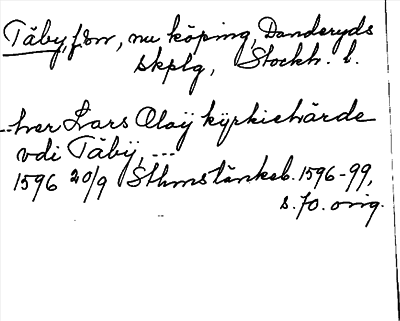 Täby, f.sn, nu köping, Danderyds
skplg, Stockh. l.
---her Lars Oloÿ kÿrkieherde
vdi Täbÿ, ---
1596 20/9 Sthmstänkeb. 1596-99,
s. 70. orig.